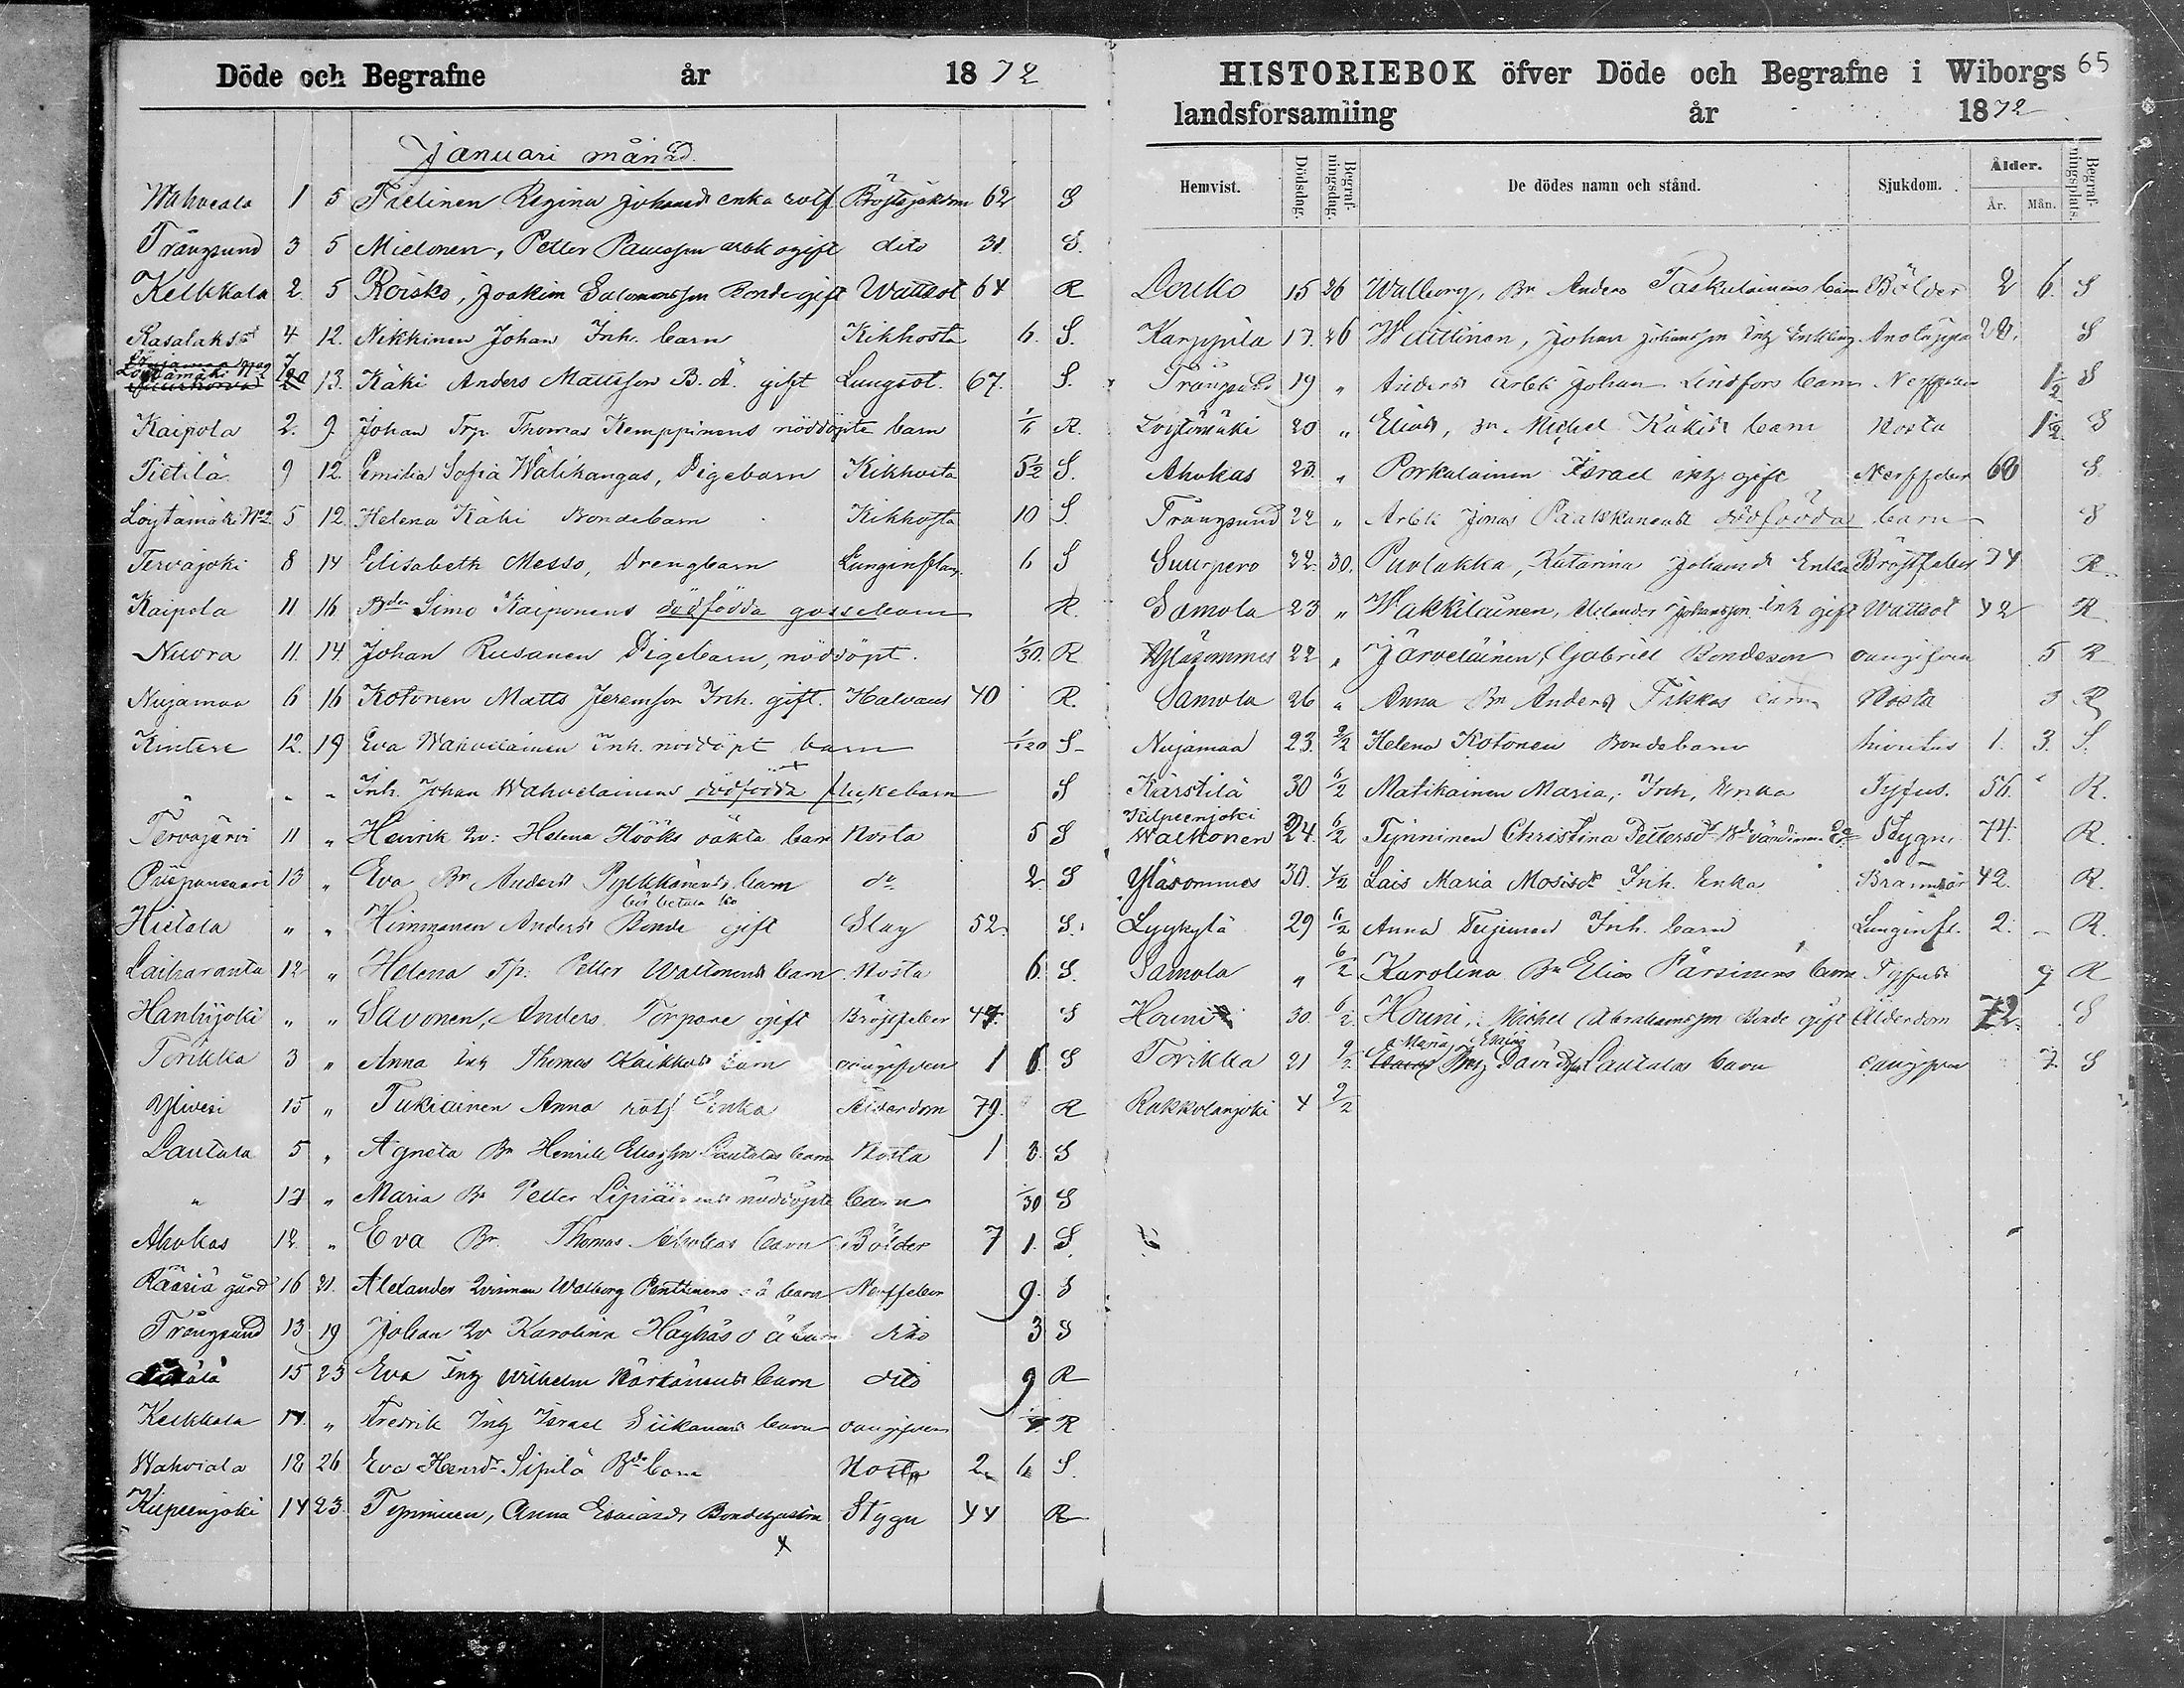 Döde och Begrafne år 1872
Januari månad
Wahviala 1 5 Regina Johansdr enka rotf Bröstsjukdom 62 S
Trångsund 3 5 Mielonen, Petter arbk ogift dito 31 S.
Kelkkala 2. 5 Roisko, Joakim Salomonsson Bonde gift Wattsot 64 R
Rasalaks 4 12. Nikkinen Johan Inh. barn Kikhosta 6. S.
Loytämäki No 2 13. Käki Anders Mattsson B. Å. gift Lungsot. 67. S.
Kaipola 2. 9 Johan Trp. Thomas Kemppinens nöddöpte barn R.
Tietilä 9 12. Emilia Sofia Wälikangas, Pigebarn Kikhosta 5½ S.
Loytämäki No 2 5 12 Helena Käki Bondebarn Kikhosta 10 S.
Tervajoki 8 14 Elisabeth Messo, Drengbarn Lunginflam. 6 S
Kaipola 11 16 Bdn Simo Kaiponens dödfödda gossebarn R.
Nuora 11. 14. Johan Rusanen Pigebarn, nöddöpt. 1/30. R
Nujamaa 6 16 Kotonen Matts Jeremson Inh. gift. Halvans 40 R.
Kintere 12. 19 Eva Wahvelainen Inh. nöddöpt barn 1/120 S
" " Inh. Johan Wahvelainens dödfödda flickebarn S
Tervajärvi 11 " Henrik Qv: Helena Hööks oäkta barn Hosta 5 S
13 " Eva Bn Anders Pylkkänens barn do 2 S
Hietala " " Himmanen Anders Bonde gift Slag 52. S.
Laiharanta 12 " Helena Tp. Petter Waltonens barn Hosta 6. S.
Hanhijoki " " Savonen, Anders Torpare gift Bröstfeber 47. S
Terikka 3 " Anna Inh Thomas Kaikkos barn oangifven 1 6. S
Yliveri 15 " Tukiainen Anna rotf Enka Ålderdom 79. R
Lautala 5 " Agneta Bn Henrik Eliasson Lautalas barn Hosta 1 3. S
" 17 " Maria Bn Petter nöddöpte barn 1/30 S
Ahokas 12. " Eva Bn. Thomas Ahokas barn Bölder 7 1. S.
Kääriä gård 16 21. Alexander Qvinnan Walborg Penttinens o ä barn Nerffeber 9. S
Trångsund 13 19 Johan Qv Karolina Häyhäs o ä barn dito 3 S
15 23 Eva Inh Wilhelm Härkönens barn dito 9 R
Kelkkala 14. " Fredrik Inh Israel Siikanens barn oangifven R
Wahviala 18 26 Eva Henrdr Sipilä Bde barn Hosta 2 6 S.
Kilpeenjoki 14 23. Tynninen, Anna Esaiasdr Stygn 44 R
HISTORIEBOK öfver Döde och Begrafne i Wiborgs 65
landsförsamling år 1872
Hemvist. Dödsdag. Begrafningsdag. De dödes namn och stånd. Sjukdom. Ålder. År. Mån. Begrafningsplats.
Louko 15 26 Walborg, Bn Anders Taskulainens barn Bölder 2 6. S
Karppila 17. 26 Waittinen, Johan Johansson Inh S
Trångsund 19 " Anders Arbk Johan Lindfors barn Nerffeber 1½ S
Loytömäki 20 " Elias, Bn. Michel Käkis barn Hosta 1½ S
Ahokas 23. " Porkalainen Israel inh gift Nerffeber 60 S.
Trångsund 22 " Arbk Jonas Paatskanens dödfödda barn S
Suurpero 22. 30. Puolakka, Katarina Johansdr Enka Bröstfeber 74 R.
Samola 23 " Wakkilainen, Johansson Inh gift Wattsot 42 R
Yläsommes 22 " Järveläinen, Gabriel Bondeson oangifven 5 R
Samola 26 " Anna Bn Anders Tikkas barn Hosta 3 R
Nujamaa 23. 2/2 Helena Kotonen Bondebarn 1. 3. S.
Kärstilä 30 6/2 Matikainen Maria, Inh. Enka Tyfus. 56. R.
Kilpeenjoki
Walkonen 24. 6/2 Tynninen Christina Pettersdr Bdvärdinna Ea Stygn 74. R.
Yläsommes 30. 4/2 Lais Maria Mosisdr Inh. Enka 42. R.
Lyykylä 29 6/2 Anna Teijonen Inh. barn Lunginfl. 2. R.
Samola " 6/2 Karolina Bn Elias Pärsinens barn Tyfus 9 R
Houni 30. 6/2 Houni, Michel Abrahamsson Bonde gift Ålderdom 72. S
Maria
Terikka 21 9/2 Inh David Lautalas barn oangifven 7. S
Rakkolanjoki 4 9/2